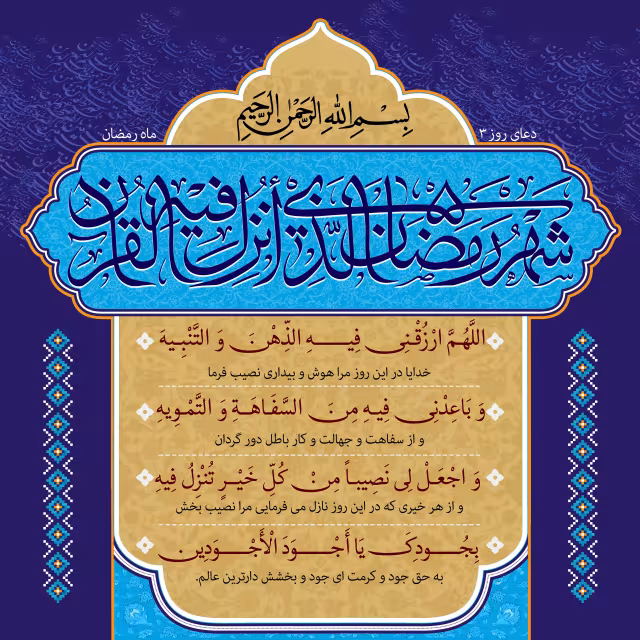 بِسْمِ اللهِ الرَّحْمٰنِ الرَّحِیمِ
دعای روز ۳
ماه رمضان
شَهْرُ رَمَضَانَ الَّذِي أُنْزِلَ فِيهِ الْقُرْآنُ
اللَّهُمَّ ارْزُقْنِی فِیهِ الذِّهْنَ وَ التَّنْبِیهَ
خدایا در این روز مرا هوش و بیداری نصیب فرما
وَ بَاعِدْنِی فِیهِ مِنَ السَّفَاهَةِ وَ التَّمْوِیهِ
و از سفاهت و جهالت و کار باطل دور گردان
وَ اجْعَلْ لِی نَصِیباً مِنْ کُلِّ خَیْرٍ تُنْزِلُ فِیهِ
و از هر خیری که در این روز نازل می فرمایی مرا نصیب بخش
بِجُودِکَ یَا أَجْوَدَ الْأَجْوَدِینَ
به حق جود و کرمت ای جود و بخشش دارترین عالم.